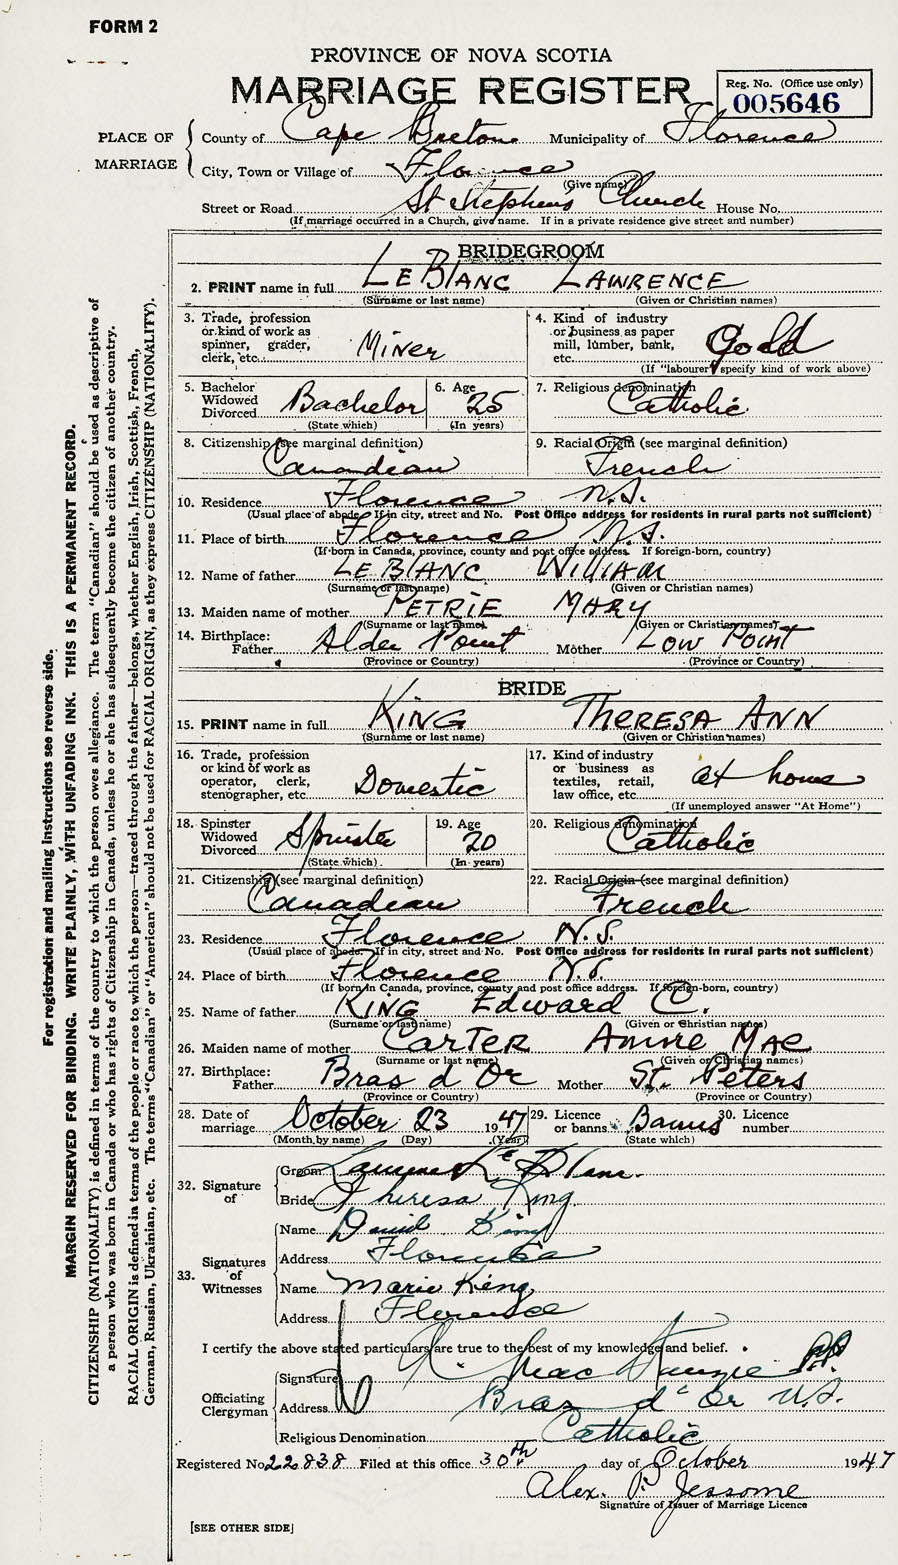 FORM 2
PROVINCE OF NOVA SCOTIA
MARRIAGE REGISTER
Reg. No. (Office use only)
005646
PLACE OF MARRIAGE
County of Cape Breton Municipality of Florence
City, Town or Village of Florence
(Give name)
Street or Road St Stephens Church House No.
(If marriage occurred in a Church, give name. If in a private residence give street and number)
BRIDEGROOM
2. PRINT name in full LEBLANC LAWRENCE
(Surname or last name) (Given or Christian names)
3. Trade, profession or kind of work as spinner, grader, clerk, etc. Miner
4. Kind of industry or business as paper mill, lumber, bank, etc. Gold
(If "labourer" specify kind of work above)
5. Bachelor Widowed Divorced Bachelor
(State which)
6. Age 25
(In years)
7. Religious denomination Catholic
8. Citizenship (see marginal definition) Canadian
9. Racial Origin (see marginal definition) French
10. Residence Florence N.S.
(Usual place of abode. If in city, street and No. Post Office address for residents in rural parts not sufficient)
11. Place of birth Florence N.S.
(If born in Canada, province, county and post office address. If foreign-born, country)
12. Name of father LEBLANC WILLIAM
(Surname or last name) (Given or Christian names)
13. Maiden name of mother PETRIE MARY
(Surname or last name) (Given or Christian names)
14. Birthplace: Father Alder Point Mother LOW POINT
(Province or Country) (Province or Country)
BRIDE
15. PRINT name in full KING THERESA ANN
(Surname or last name) (Given or Christian names)
16. Trade, profession or kind of work as operator, clerk, stenographer, etc. Domestic
17. Kind of industry or business as textiles, retail, law office, etc. at home
(If unemployed answer "At Home")
18. Spinster Widowed Divorced Spinster
(State which)
19. Age 20
(In years)
20. Religious denomination Catholic
21. Citizenship (see marginal definition) Canadian
22. Racial Origin (see marginal definition) French
23. Residence Florence N.S.
(Usual place of abode. If in city, street and No. Post Office address for residents in rural parts not sufficient)
24. Place of birth Florence N.S.
(If born in Canada, province, county and post office address. If foreign-born, country)
25. Name of father KING Edward C.
(Surname or last name) (Given or Christian names)
26. Maiden name of mother CARTER Annie Mae
(Surname or last name) (Given or Christian names)
27. Birthplace: Father Bras d'Or Mother St. Peters
(Province or Country) (Province or Country)
28. Date of marriage October 23 1947
(Month by name) (Day) (Year)
29. Licence or banns Banns
(State which)
30. Licence number
32. Signature of
Groom Lawrence LeBlanc
Bride Theresa King
33. Signatures of Witnesses
Name David King
Address Florence
Name Marie King
Address Florence
I certify the above stated particulars are true to the best of my knowledge and belief.
Officiating Clergyman
Signature MacKenzie P.P.
Address Bras d'Or N.S.
Religious Denomination Catholic
Registered No. 22838 Filed at this office 30th day of October 1947
Alex. P. Jessome
Signature of Issuer of Marriage Licence
[SEE OTHER SIDE]
For registration and mailing instructions see reverse side.
MARGIN RESERVED FOR BINDING. WRITE PLAINLY, WITH UNFADING INK. THIS IS A PERMANENT RECORD.
CITIZENSHIP (NATIONALITY) is defined in terms of the country to which the person owes allegiance. The term "Canadian" should be used as descriptive of
a person who was born in Canada or who has rights of Citizenship in Canada, unless he or she has subsequently become the citizen of another country.
RACIAL ORIGIN is defined in terms of the people or race to which the person—traced through the father—belongs, whether English, Irish, Scottish, French,
German, Russian, Ukrainian, etc. The terms "Canadian" or "American" should not be used for RACIAL ORIGIN, as they express CITIZENSHIP (NATIONALITY).